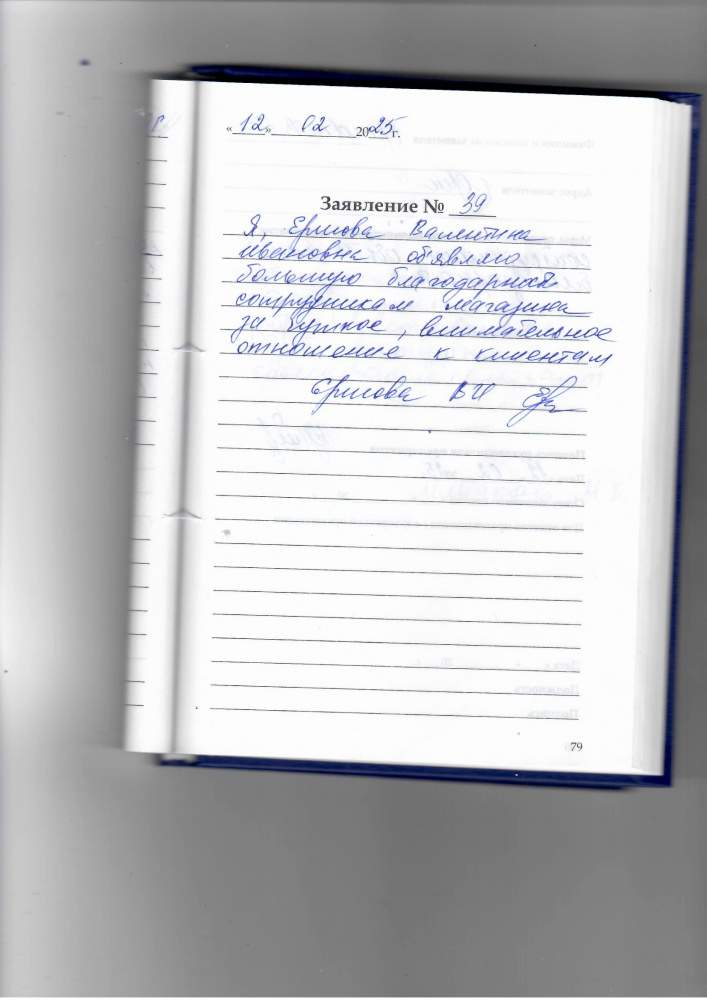 «12» 02 2025 г.
Заявление № 39
Я, Ермова Валентина
Ивановна объявляю
большую благодарность
сотрудникам магазина
за чуткое, внимательное
отношение к клиентам
Ермова ВИ
79